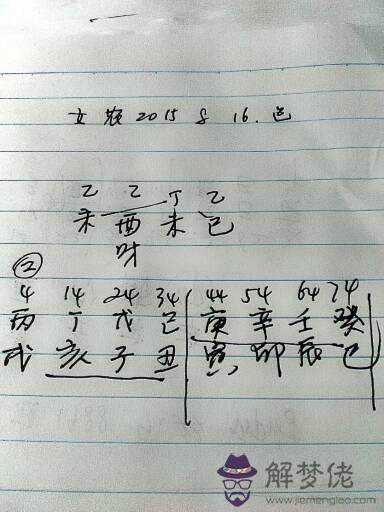 女 2015 8 16. 巳
乙 乙 丁 乙
未 酉 未 巳
时
②
4 14 24 34 44 54 64 74
丙 丁 戊 己 庚 辛 壬 癸
戌 亥 子 丑 寅 卯 辰 巳
解梦佬
www.jiemenglao.com